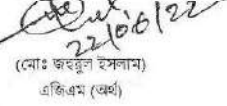 22/06/22
(মোঃ জহুরুল ইসলাম)
এজিএম (অর্থ)